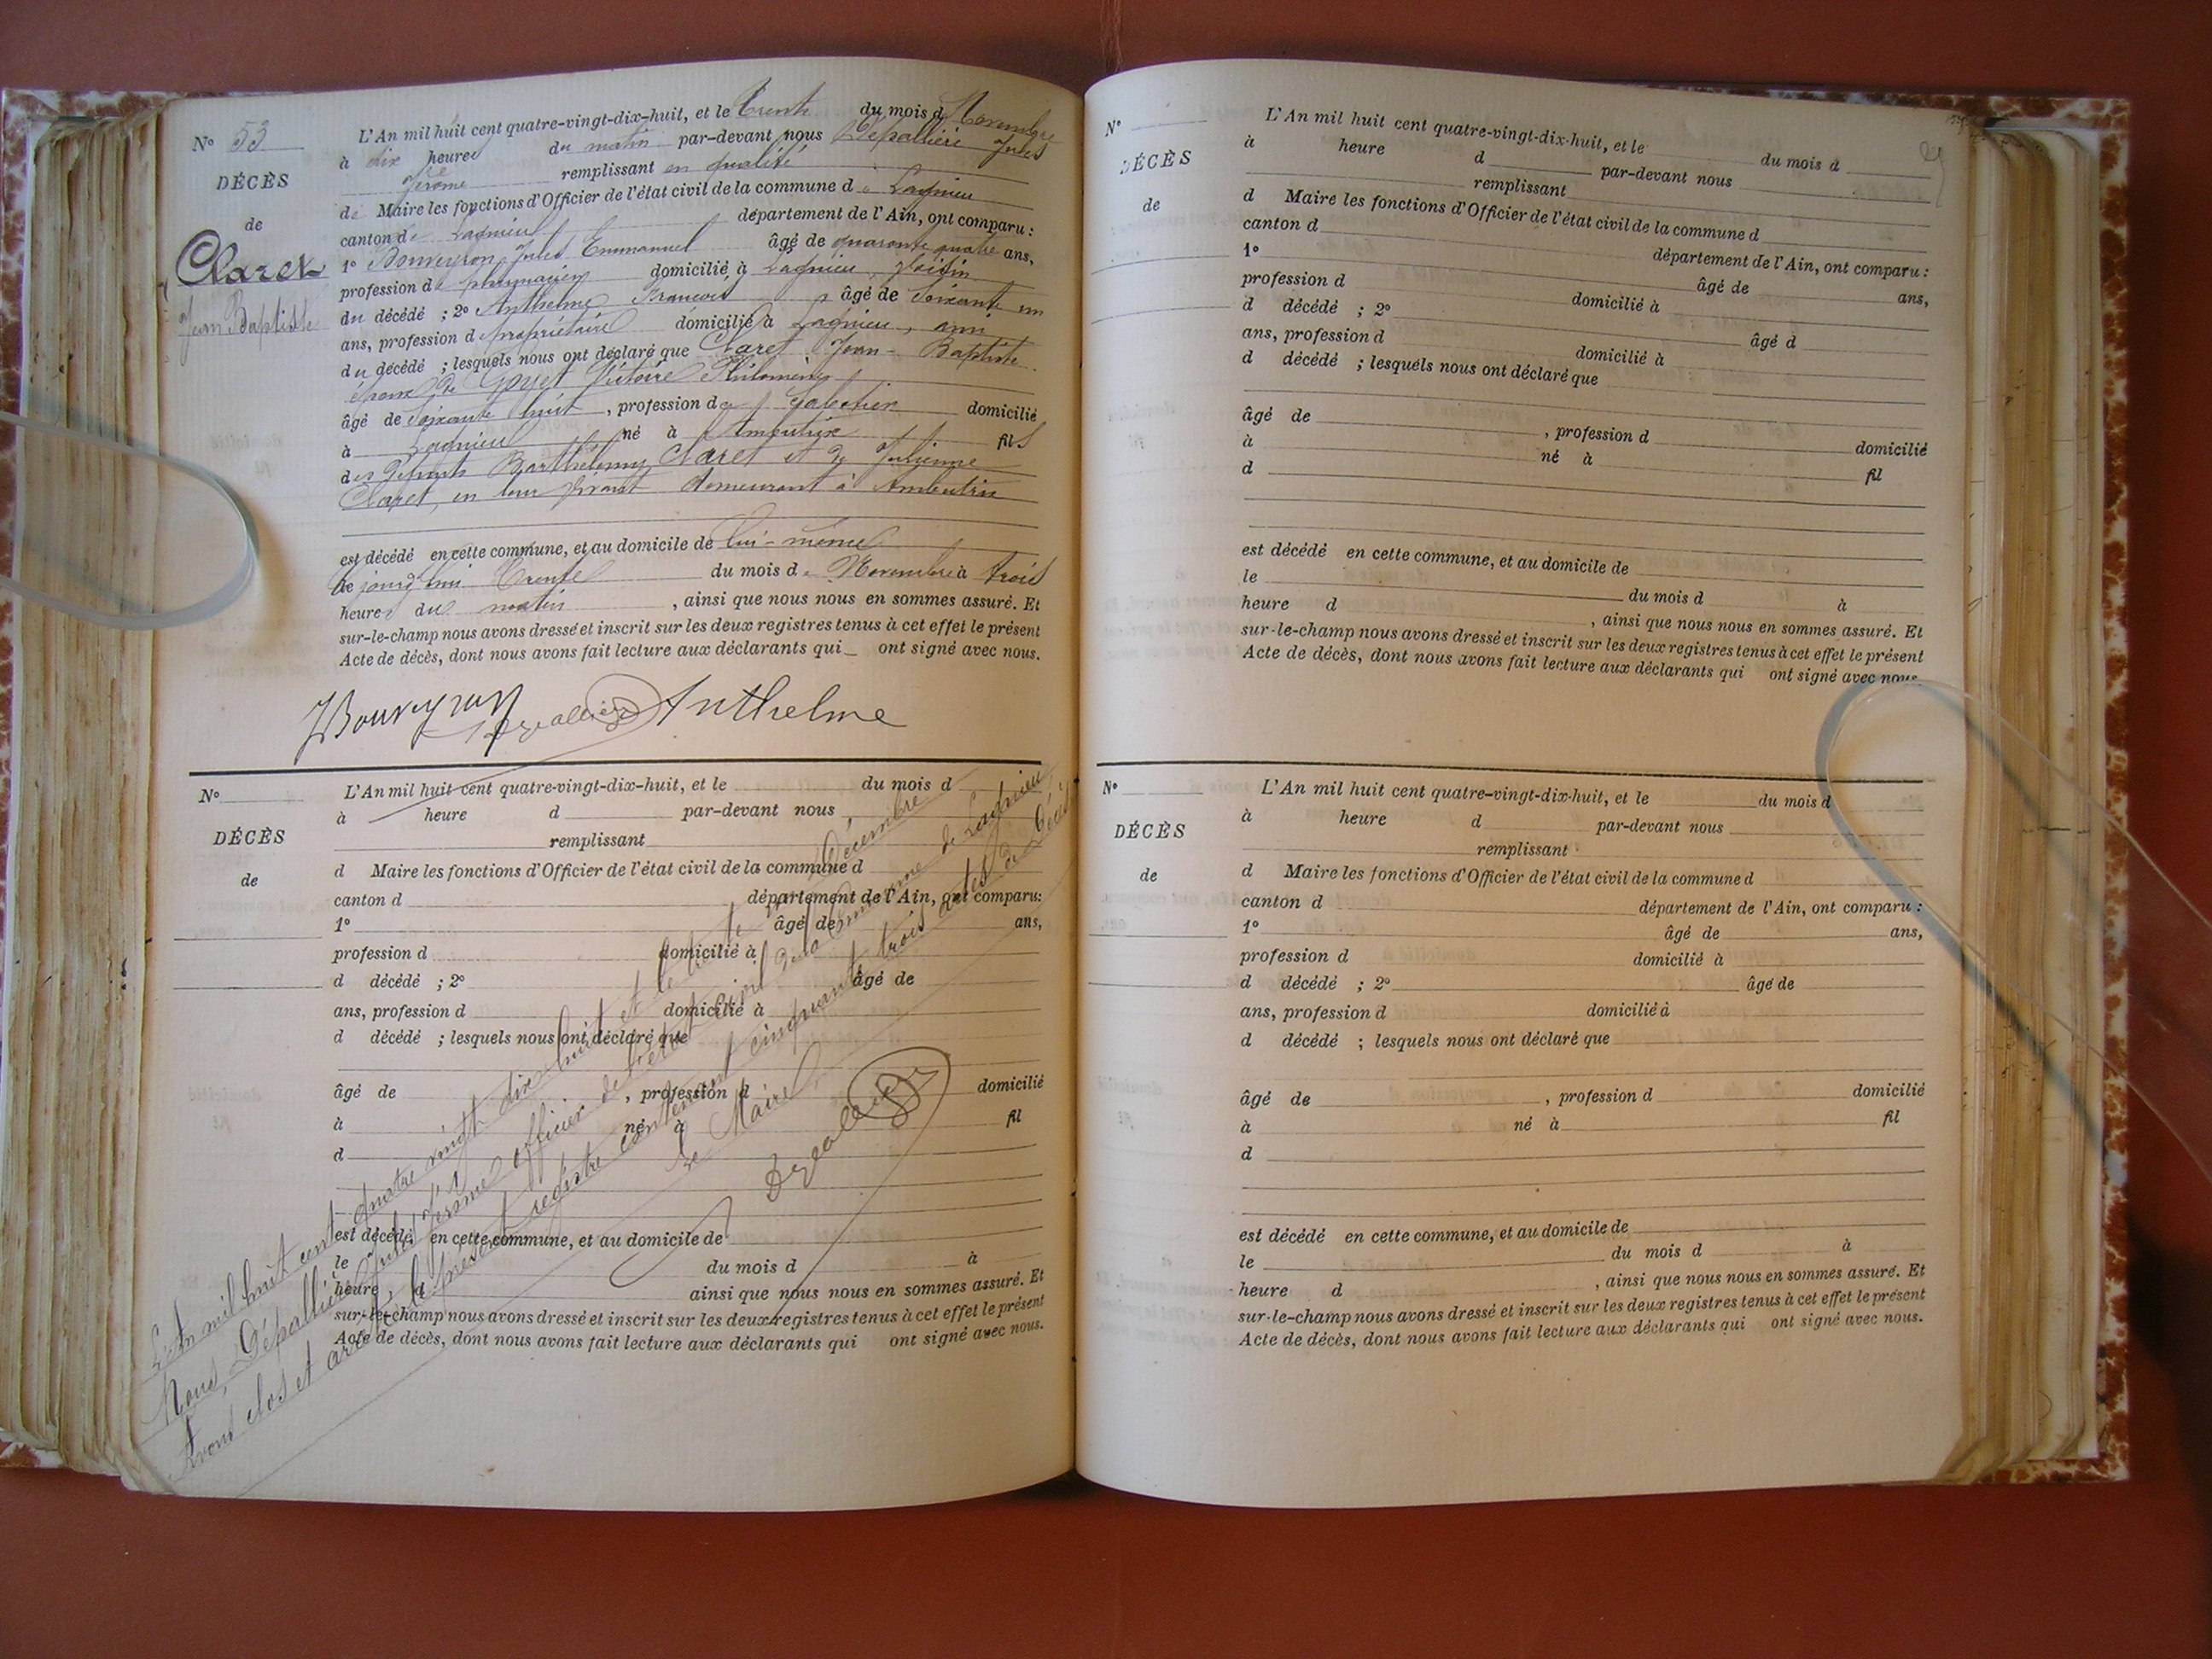 N° 53
DÉCÈS
de
Claret
Jean Baptiste
L'An mil huit cent quatre-vingt-dix-huit, et le Trente du mois de Novembre
à dix heures du matin par-devant nous Dépallière Jules
Jérôme remplissant en qualité
de Maire les fonctions d'Officier de l'état civil de la commune de Lagnieu
canton de Lagnieu département de l'Ain, ont comparu :
1° Bouveyron Jules Emmanuel âgé de quarante quatre ans,
profession de pharmacien domicilié à Lagnieu, voisin
du décédé ; 2° Anthelme François, âgé de soixante un
ans, profession de propriétaire domicilié à Lagnieu, ami
du décédé ; lesquels nous ont déclaré que Claret, Jean-Baptiste
époux de Goyet Victoire Philomène
âgé de soixante huit, profession de domicilié
à Lagnieu né à Ambutrix fils
des défunts Barthélemy Claret et de Julienne
Claret, en leur vivant demeurant à Ambutrix
est décédé en cette commune, et au domicile de lui-même
le jourd'hui Trente du mois de Novembre à trois
heures du matin, ainsi que nous nous en sommes assuré. Et
sur-le-champ nous avons dressé et inscrit sur les deux registres tenus à cet effet le présent
Acte de décès, dont nous avons fait lecture aux déclarants qui ont signé avec nous.
JBouveyron Dépallière Anthelme
N°
DÉCÈS
de
L'An mil huit cent quatre-vingt-dix-huit, et le du mois d
à heure d par-devant nous
remplissant
d Maire les fonctions d'Officier de l'état civil de la commune d
canton d département de l'Ain, ont comparu :
1° âgé de ans,
profession d domicilié à
d décédé ; 2° âgé de
ans, profession d domicilié à
d décédé ; lesquels nous ont déclaré que
âgé de , profession d domicilié
à né à fil
d
est décédé en cette commune, et au domicile de
le du mois d à
heure d ainsi que nous nous en sommes assuré. Et
sur-le-champ nous avons dressé et inscrit sur les deux registres tenus à cet effet le présent
Acte de décès, dont nous avons fait lecture aux déclarants qui ont signé avec nous.
L'an mil huit cent quatre vingt dix huit et le trente un Décembre
Nous, Dépallière Jules Jérome officier de l'état civil de la Commune de Lagnieu
Avons clos et arrêté le présent registre contenant cinquante trois actes de Décès
Le Maire
Dépallière
N°
DÉCÈS
de
L'An mil huit cent quatre-vingt-dix-huit, et le du mois d
à heure d par-devant nous
remplissant
d Maire les fonctions d'Officier de l'état civil de la commune d
canton d département de l'Ain, ont comparu :
1° âgé de ans,
profession d domicilié à
d décédé ; 2° âgé d
ans, profession d domicilié à
d décédé ; lesquels nous ont déclaré que
âgé de , profession d domicilié
à né à fil
d
est décédé en cette commune, et au domicile de
le du mois d à
heure d , ainsi que nous nous en sommes assuré. Et
sur-le-champ nous avons dressé et inscrit sur les deux registres tenus à cet effet le présent
Acte de décès, dont nous avons fait lecture aux déclarants qui ont signé avec nous.
N°
DÉCÈS
de
L'An mil huit cent quatre-vingt-dix-huit, et le du mois d
à heure d par-devant nous
remplissant
d Maire les fonctions d'Officier de l'état civil de la commune d
canton d département de l'Ain, ont comparu :
1° âgé de ans,
profession d domicilié à
d décédé ; 2° âgé de
ans, profession d domicilié à
d décédé ; lesquels nous ont déclaré que
âgé de , profession d domicilié
à né à fil
d
est décédé en cette commune, et au domicile de
le du mois d à
heure d , ainsi que nous nous en sommes assuré. Et
sur-le-champ nous avons dressé et inscrit sur les deux registres tenus à cet effet le présent
Acte de décès, dont nous avons fait lecture aux déclarants qui ont signé avec nous.